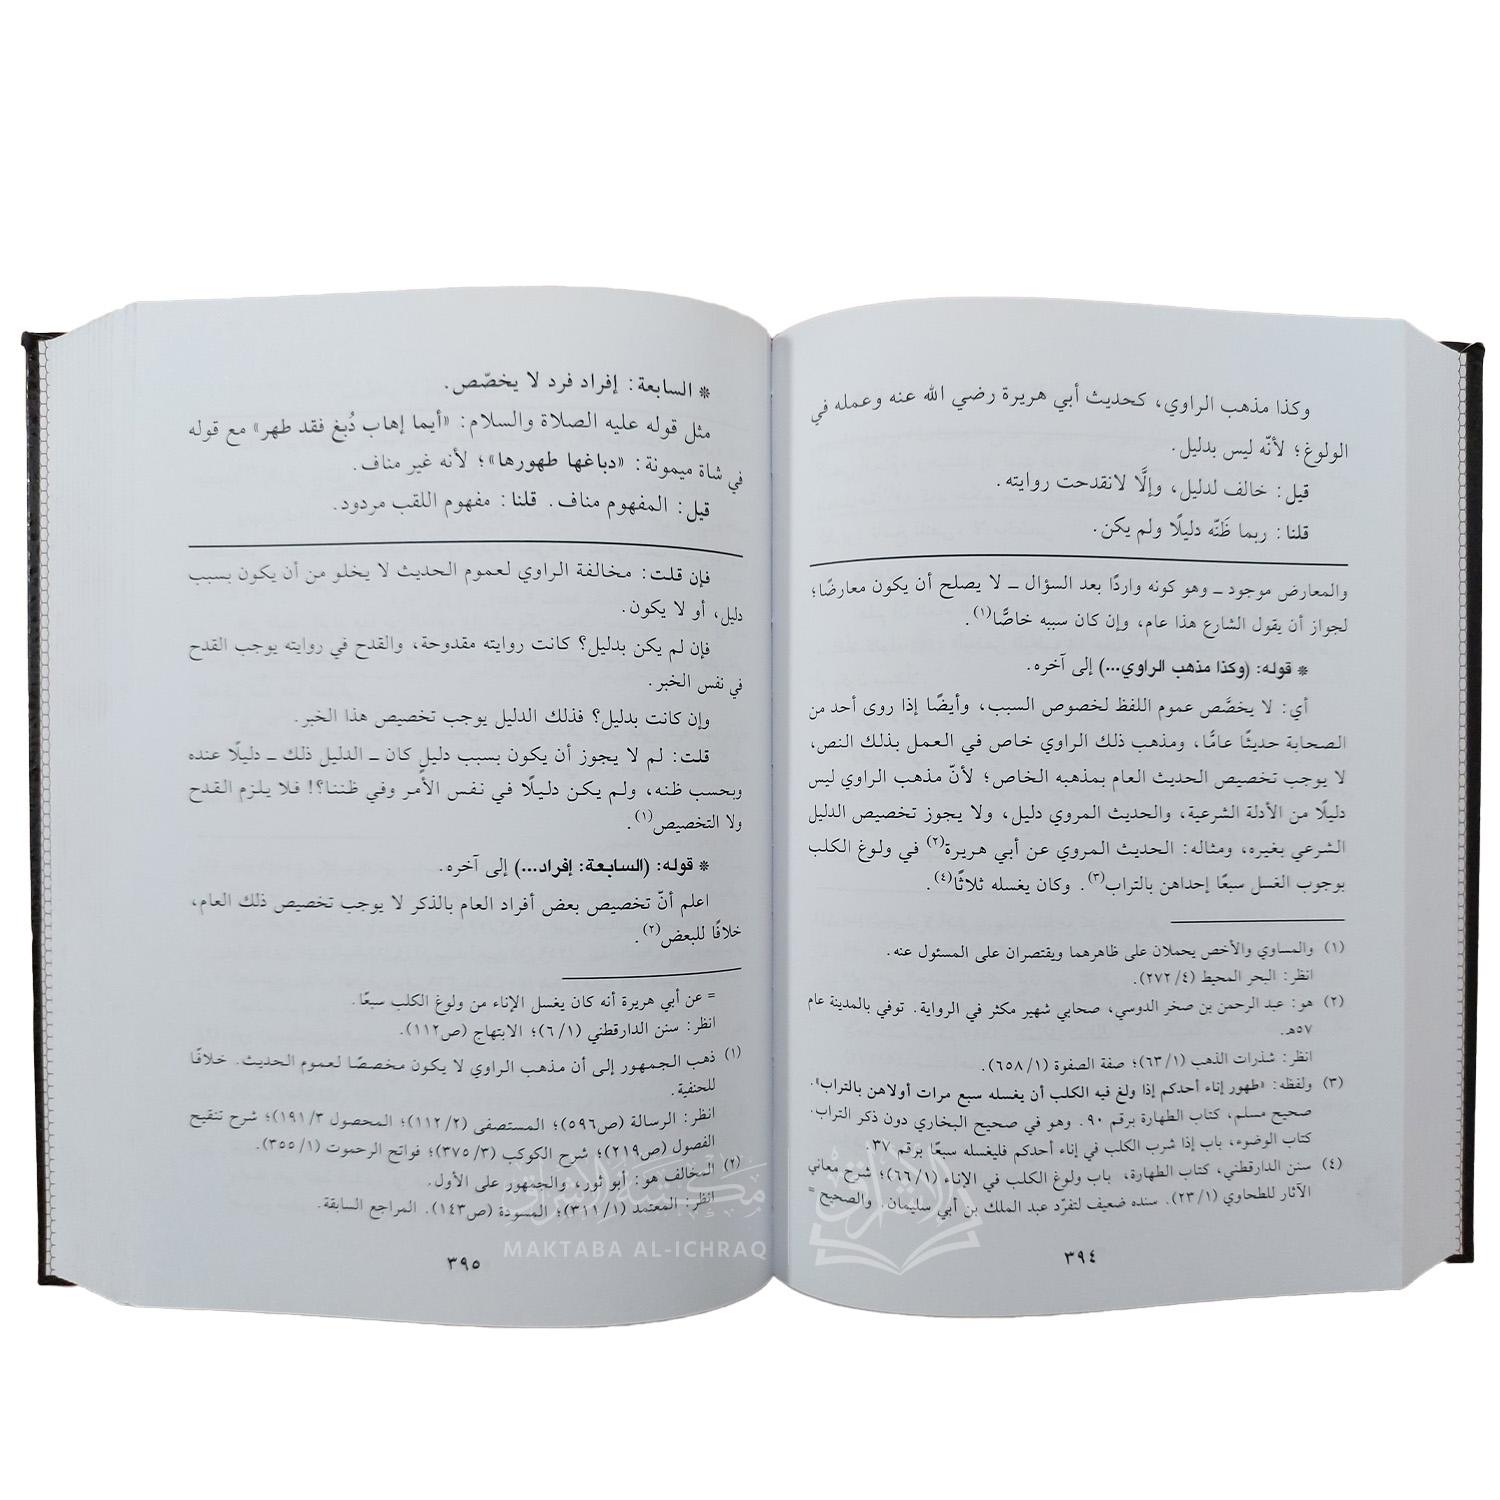 وكذا مذهب الراوي، كحديث أبي هريرة رضي الله عنه وعمله في
الولوغ؛ لأنّه ليس بدليل.
قيل: خالف لدليل، وإلَّا لانقدحت روايته.
قلنا: ربما ظَنّه دليلًا ولم يكن.
والمعارض موجود ــ وهو كونه واردًا بعد السؤال ــ لا يصلح أن يكون معارضًا؛
لجواز أن يقول الشارع هذا عام، وإن كان سببه خاصًّا(١).
* قوله: (وكذا مذهب الراوي...) إلى آخره.
أي: لا يخصَّص عموم اللفظ لخصوص السبب، وأيضًا إذا روى أحد من
الصحابة حديثًا عامًّا، ومذهب ذلك الراوي خاص في العمل بذلك النص،
لا يوجب تخصيص الحديث العام بمذهبه الخاص؛ لأنّ مذهب الراوي ليس
دليلًا من الأدلة الشرعية، والحديث المروي دليل، ولا يجوز تخصيص الدليل
الشرعي بغيره، ومثاله: الحديث المروي عن أبي هريرة(٢) في ولوغ الكلب
بوجوب الغسل سبعًا إحداهن بالتراب(٣). وكان يغسله ثلاثًا(٤).
(١) والمساوي والأخص يحملان على ظاهرهما ويقتصران على المسئول عنه.
انظر: البحر المحيط (٤/ ٢٧٢).
(٢) هو: عبد الرحمن بن صخر الدوسي، صحابي شهير مكثر في الرواية. توفي بالمدينة عام
٥٧هـ.
انظر: شذرات الذهب (١/ ٦٣)؛ صفة الصفوة (١/ ٦٥٨).
(٣) ولفظه: «طهور إناء أحدكم إذا ولغ فيه الكلب أن يغسله سبع مرات أولاهن بالتراب».
صحيح مسلم، كتاب الطهارة برقم ٩٠. وهو في صحيح البخاري دون ذكر التراب.
كتاب الوضوء، باب إذا شرب الكلب في إناء أحدكم فليغسله سبعًا برقم ٣٧.
(٤) سنن الدارقطني، كتاب الطهارة، باب ولوغ الكلب في الإناء (١/ ٦٦)؛ شرح معاني
الآثار للطحاوي (١/ ٢٣). سنده ضعيف لتفرّد عبد الملك بن أبي سليمان. والصحيح =
٣٩٤
* السابعة: إفراد فرد لا يخصّص.
مثل قوله عليه الصلاة والسلام: «أيما إهاب دُبغ فقد طهر» مع قوله
في شاة ميمونة: «دباغها طهورها»؛ لأنه غير مناف.
قيل: المفهوم مناف. قلنا: مفهوم اللقب مردود.
فإن قلت: مخالفة الراوي لعموم الحديث لا يخلو من أن يكون بسبب
دليل، أو لا يكون.
فإن لم يكن بدليل؟ كانت روايته مقدوحة، والقدح في روايته يوجب القدح
في نفس الخبر.
وإن كانت بدليل؟ فذلك الدليل يوجب تخصيص هذا الخبر.
قلت: لم لا يجوز أن يكون بسبب دليل كان ــ الدليل ذلك ــ دليلًا عنده
وبحسب ظنه، ولم يكن دليلًا في نفس الأمر وفي ظننا؟! فلا يلزم القدح
ولا التخصيص(١).
* قوله: (السابعة: إفراد...) إلى آخره.
اعلم أنّ تخصيص بعض أفراد العام بالذكر لا يوجب تخصيص ذلك العام،
خلافًا للبعض(٢).
= عن أبي هريرة أنه كان يغسل الإناء من ولوغ الكلب سبعًا.
انظر: سنن الدارقطني (١/ ٦)؛ الابتهاج (ص١١٢).
(١) ذهب الجمهور إلى أن مذهب الراوي لا يكون مخصصًا لعموم الحديث. خلافًا
للحنفية.
انظر: الرسالة (ص٥٩٦)؛ المستصفى (٢/ ١١٢)؛ المحصول ٣/ ١٩١)؛ شرح تنقيح
الفصول (ص٢١٩)؛ شرح الكوكب (٣/ ٣٧٥)؛ فواتح الرحموت (١/ ٣٥٥).
(٢) المخالف هو: أبو ثور، والجمهور على الأول.
انظر: المعتمد (١/ ٣١١)؛ المسودة (ص١٤٣). المراجع السابقة.
٣٩٥
مكتبة الإشراق
MAKTABA AL-ICHRAQ
الإشراق